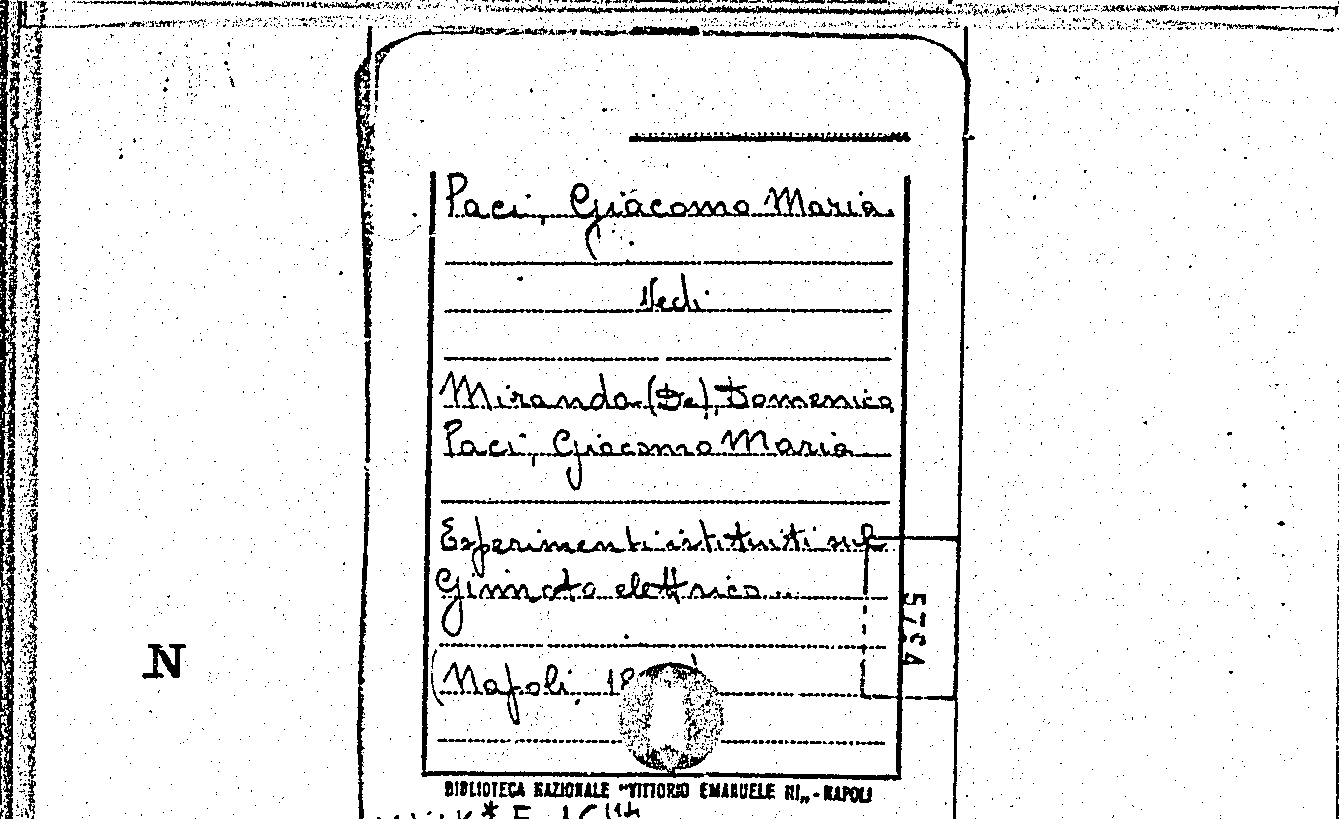 Paci, Giacomo Maria.
Vedi
Miranda (De), Domenico
Paci, Giacomo Maria
Esperimenti istituiti sul
Gimnoto elettrico ..
5764
N
(Napoli, 18
BIBLIOTECA NAZIONALE "VITTORIO EMANUELE III„ - NAPOLI